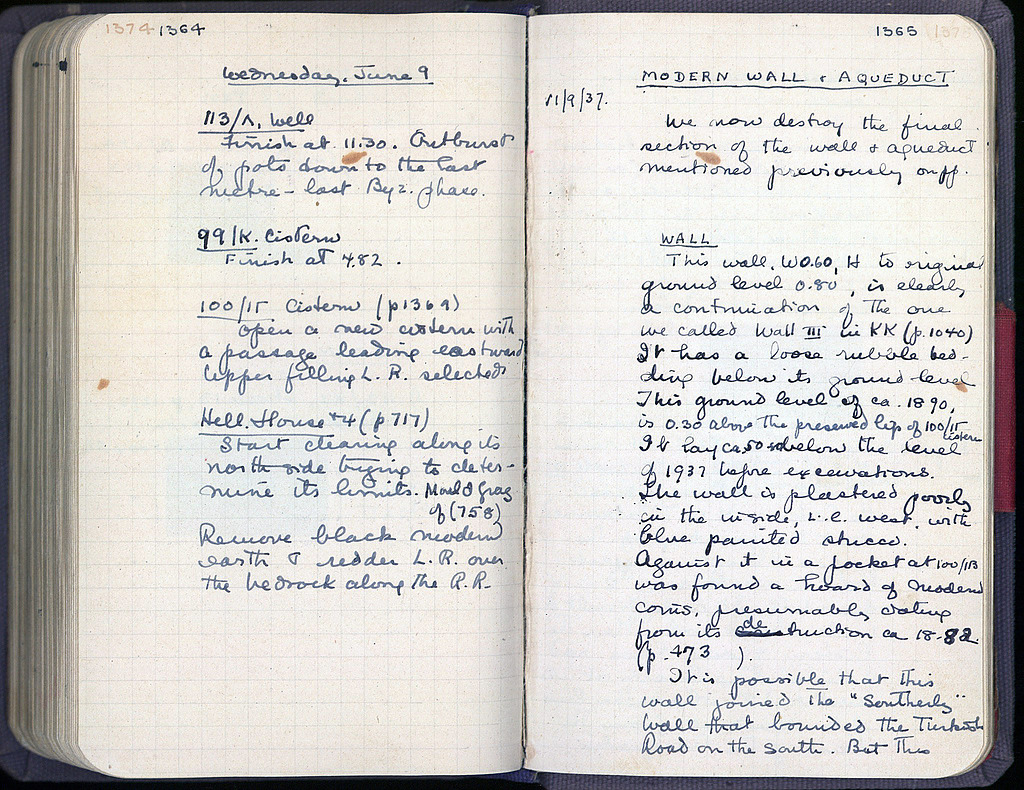 1374 1364
Wednesday, June 9
113/Λ, Well
Finish at 11.30. Outburst
of pots down to the last
metre – last Byz. phase.
99/K. Cistern
Finish at 4.82.
100/ΙΓ Cistern (p1369)
Open a new cistern with
a passage leading eastward
Upper filling L. R. selected
Hell. House #4 (p 717)
Start clearing along its
north side trying to deter-
mine its limits.
of (758)
Remove black modern
earth & redder L.R. over
the bedrock along the R.R.
1365 1375
MODERN WALL & AQUEDUCT
11/9/37.
We now destroy the final
section of the wall & aqueduct
mentioned previously on pp.
WALL
This wall, W0.60, H to original
ground level 0.80, is clearly
a continuation of the one
we called Wall III in KK (p. 1040)
It has a loose rubble bed-
ding below its ground level
This ground level of ca. 1890,
is 0.30 above the preserved lip of 100/ΙΓ
cistern
It lay ca. 50 below the level
of 1937 before excavations.
The wall is plastered poorly
on the inside, i.e. west, with
blue painted stucco.
Against it in a pocket at 100/ΙΒ
was found a hoard of modern
coins, presumably dating
from its destruction ca 18-82.
(p. 473 ).
It is possible that this
wall joined the "Southerly"
wall that bounded the Turkish
Road on the South. But this